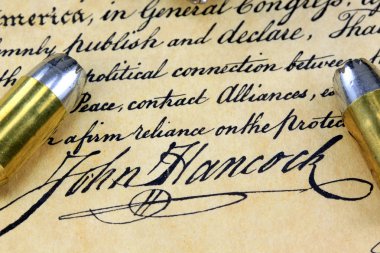 merica, in General Congress,
mnly publish and declare, Tha
political connection between
Peace, contract Alliances,
a firm reliance on the protec
John Hancock